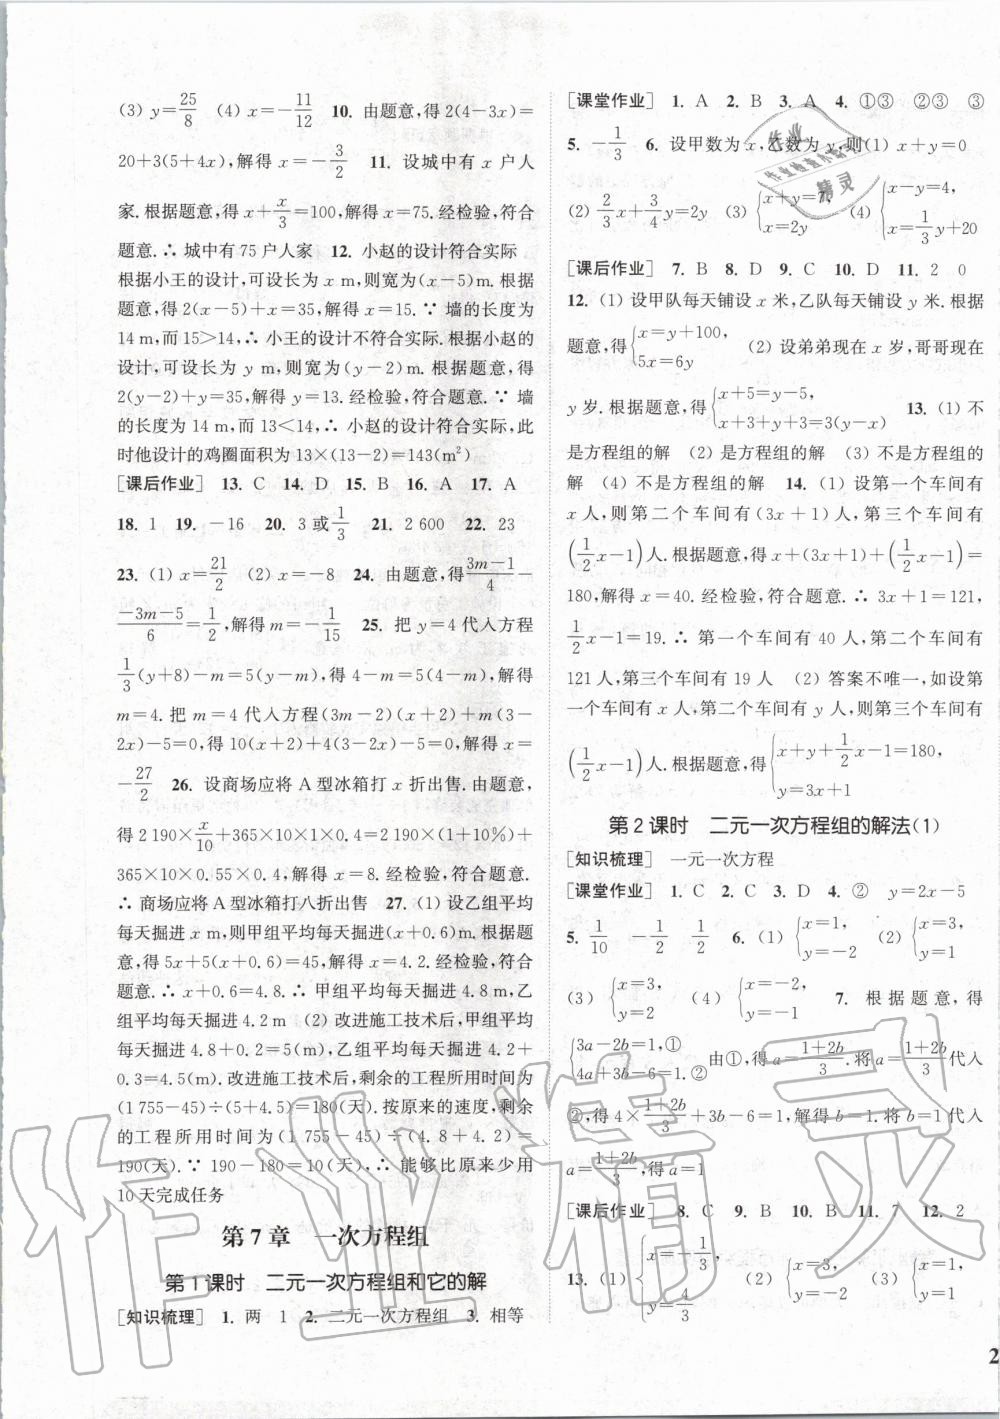 (3) y=25/8 (4) x=-11/12 10. 由题意,得 2(4-3x)=
20+3(5+4x),解得 x=-3/2 11. 设城中有 x 户人
家.根据题意,得 x+x/3=100,解得 x=75.经检验,符合
题意.∴ 城中有 75 户人家 12. 小赵的设计符合实际
根据小王的设计,可设长为 x m,则宽为(x-5)m.根据
题意,得 2(x-5)+x=35,解得 x=15.∵ 墙的长度为
14 m,而 15>14,∴ 小王的设计不符合实际.根据小赵的
设计,可设长为 y m,则宽为(y-2)m.根据题意,得
2(y-2)+y=35,解得 y=13.经检验,符合题意.∵ 墙
的长度为 14 m,而 13<14,∴ 小赵的设计符合实际,此
时他设计的鸡圈面积为 13×(13-2)=143(m²)
[课后作业] 13. C 14. D 15. B 16. A 17. A
18. 1 19. -16 20. 3 或 1/3 21. 2 600 22. 23
23. (1) x=21/2 (2) x=-8 24. 由题意,得 (3m-1)/4 -
(-3m-5)/6=1/2,解得 m=-1/15 25. 把 y=4 代入方程
1/3(y+8)-m=5(y-m),得 4-m=5(4-m),解得
m=4.把 m=4 代入方程(3m-2)(x+2)+m(3-
2x)-5=0,得 10(x+2)+4(3-2x)-5=0,解得 x=
-27/2 26. 设商场应将 A 型冰箱打 x 折出售.由题意,
得 2 190×x/10+365×10×1×0.4=2 190(1+10%)+
365×10×0.55×0.4,解得 x=8.经检验,符合题意.
∴ 商场应将 A 型冰箱打八折出售 27. (1) 设乙组平均
每天掘进 x m,则甲组平均每天掘进(x+0.6)m.根据题
意,得 5x+5(x+0.6)=45,解得 x=4.2.经检验,符合
题意.∴ x+0.6=4.8.∴ 甲组平均每天掘进 4.8 m,乙
组平均每天掘进 4.2 m (2) 改进施工技术后,甲组平均
每天掘进 4.8+0.2=5(m),乙组平均每天掘进 4.2+
0.3=4.5(m).改进施工技术后,剩余的工程所用时间为
(1 755-45)÷(5+4.5)=180(天).按原来的速度,剩余
的工程所用时间为(1 755-45)÷(4.8+4.2)=
190(天).∵ 190-180=10(天),∴ 能够比原来少用
10 天完成任务
第 7 章 一次方程组
第 1 课时 二元一次方程组和它的解
[知识梳理] 1. 两 1 2. 二元一次方程组 3. 相等
[课堂作业] 1. A 2. B 3. A 4. ①③ ②③ ③
5. -1/3 6. 设甲数为 x,乙数为 y,则(1) x+y=0
(2) 2/3x+3/4y=2y (3) {x+y=7, x=2y (4) {x-y=4, x=1/3y+20
[课后作业] 7. B 8. D 9. C 10. D 11. 2 0
12. (1) 设甲队每天铺设 x 米,乙队每天铺设 y 米.根据
题意,得{x=y+100, 5x=6y (2) 设弟弟现在 x 岁,哥哥现在
y 岁.根据题意,得{x+5=y-5, x+3+y+3=3(y-x) 13. (1) 不
是方程组的解 (2) 是方程组的解 (3) 不是方程组的
解 (4) 不是方程组的解 14. (1) 设第一个车间有
x 人,则第二个车间有(3x+1)人,第三个车间有
(1/2x-1)人.根据题意,得 x+(3x+1)+(1/2x-1)=
180,解得 x=40.经检验,符合题意.∴ 3x+1=121,
1/2x-1=19.∴ 第一个车间有 40 人,第二个车间有
121 人,第三个车间有 19 人 (2) 答案不唯一,如设第
一个车间有 x 人,第二个车间有 y 人,则第三个车间有
(1/2x-1)人.根据题意,得{x+y+1/2x-1=180, y=3x+1
第 2 课时 二元一次方程组的解法(1)
[知识梳理] 一元一次方程
[课堂作业] 1. C 2. C 3. D 4. ② y=2x-5
5. 1/10 -1/2 1/2 6. (1) {x=1, y=-2 (2) {x=3, y=-1
(3) {x=3, y=2 (4) {x=-2, y=-1 7. 根据题意,得
{3a-2b=1,① 4a+3b-6=1.② 由①,得 a=(1+2b)/3.将 a=(1+2b)/3 代入
②,得 4×(1+2b)/3+3b-6=1,解得 b=1.将 b=1 代入
a=(1+2b)/3,得 a=1
[课后作业] 8. C 9. B 10. B 11. 7 12. 2
13. (1) {x=-1/3, y=4/3 (2) {x=2, y=2 (3) {x=2, y=1
2
作业精灵